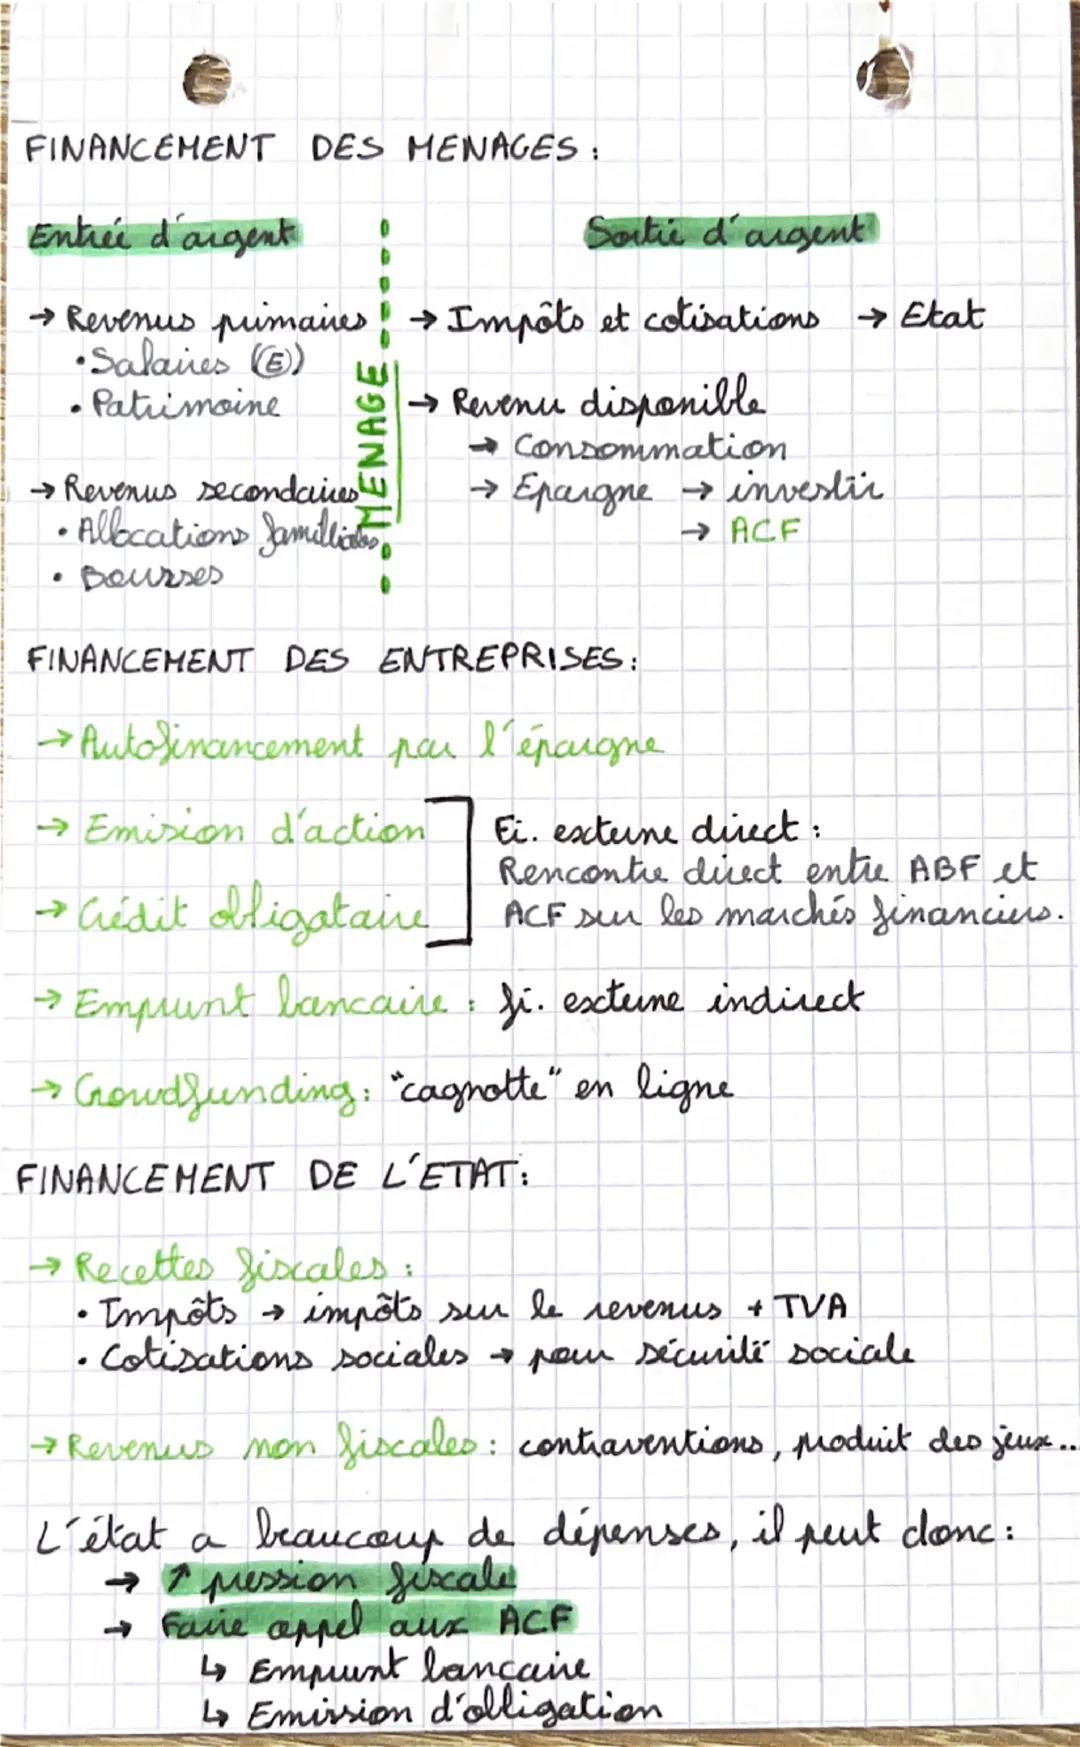 FINANCEMENT DES MENAGES :
Entrée d'argent
Sortie d'argent
→ Revenus primaires
• Salaires (E)
• Patrimoine
→ Revenus secondaires
• Allocations familliales
• Bourses
MENAGE
→ Impôts et cotisations → Etat
→ Revenu disponible
→ Consommation
→ Epargne → investir
→ ACF
FINANCEMENT DES ENTREPRISES :
→ Autofinancement par l'épargne
→ Emision d'action
→ Crédit obligataire
Fi. externe direct :
Rencontre direct entre ABF et
ACF sur les marchés financiers.
→ Emprunt bancaire : fi. externe indirect
→ Crowdfunding : "cagnotte" en ligne
FINANCEMENT DE L'ETAT :
→ Recettes fiscales :
• Impôts → impôts sur le revenus + TVA
• Cotisations sociales → pour sécurité sociale
→ Revenus non fiscales : contraventions, produit des jeux...
L'état a beaucoup de dépenses, il peut donc :
→ ↑ pression fiscale
→ Faire appel aux ACF
↳ Emprunt bancaire
↳ Emission d'obligation